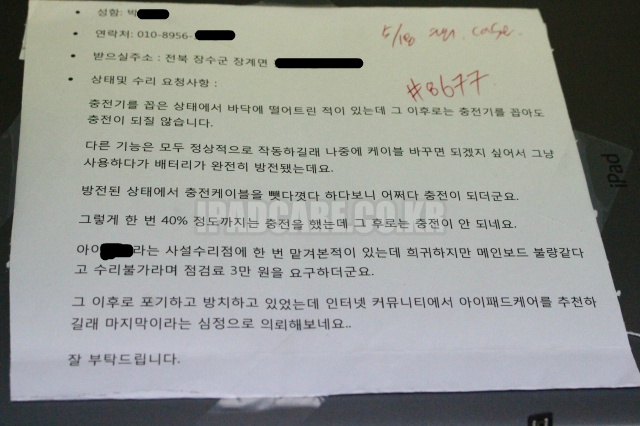 • 성함: 박
• 연락처: 010-8956-
• 받으실주소 : 전북 장수군 장계면
• 상태및 수리 요청사항 :
5/18 case.
#8677
충전기를 꼽은 상태에서 바닥에 떨어트린 적이 있는데 그 이후로는 충전기를 꼽아도
충전이 되질 않습니다.
다른 기능은 모두 정상적으로 작동하길래 나중에 케이블 바꾸면 되겠지 싶어서 그냥
사용하다가 배터리가 완전히 방전됐는데요.
방전된 상태에서 충전케이블을 뺏다꼇다 하다보니 어쩌다 충전이 되더군요.
그렇게 한 번 40% 정도까지는 충전을 했는데 그 후로는 충전이 안 되네요.
아이 라는 사설수리점에 한 번 맡겨본적이 있는데 희귀하지만 메인보드 불량같다
고 수리불가라며 점검료 3만 원을 요구하더군요.
그 이후로 포기하고 방치하고 있었는데 인터넷 커뮤니티에서 아이패드케어를 추천하
길래 마지막이라는 심정으로 의뢰해보네요..
잘 부탁드립니다.
iPad
IPADCARE.CO.KR